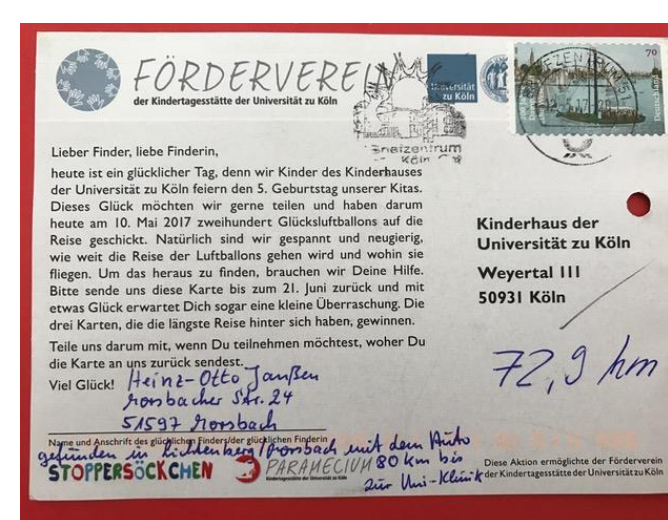 FÖRDERVEREIN
der Kindertagesstätte der Universität zu Köln
Universität
zu Köln
Briefzentrum
Köln
70
Deutschland
Lieber Finder, liebe Finderin,
heute ist ein glücklicher Tag, denn wir Kinder des Kinderhauses
der Universität zu Köln feiern den 5. Geburtstag unserer Kitas.
Dieses Glück möchten wir gerne teilen und haben darum
heute am 10. Mai 2017 zweihundert Glücksluftballons auf die
Reise geschickt. Natürlich sind wir gespannt und neugierig,
wie weit die Reise der Luftballons gehen wird und wohin sie
fliegen. Um das heraus zu finden, brauchen wir Deine Hilfe.
Bitte sende uns diese Karte bis zum 21. Juni zurück und mit
etwas Glück erwartet Dich sogar eine kleine Überraschung. Die
drei Karten, die die längste Reise hinter sich haben, gewinnen.
Teile uns darum mit, wenn Du teilnehmen möchtest, woher Du
die Karte an uns zurück sendest.
Viel Glück! Heinz-Otto Janßen
Morsbacher Str. 24
51597 Morsbach
Name und Anschrift des glücklichen Finders/der glücklichen Finderin
gefunden in Lichtenberg/Morsbach mit dem Auto
80 km bis
zur Uni-Klinik
STOPPERSÖCKCHEN
PARAMECIUM
Kindertagesstätte der Universität zu Köln
Kinderhaus der
Universität zu Köln
Weyertal 111
50931 Köln
72,9 km
Diese Aktion ermöglichte der Förderverein
der Kindertagesstätte der Universität zu Köln